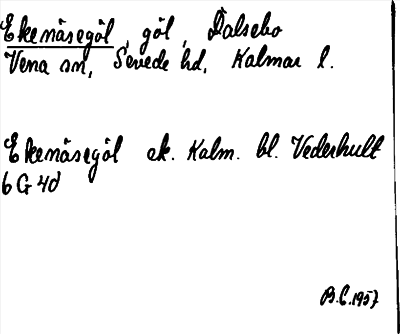 Ekenäsegöl, göl, Dalsebo
Vena sn, Sevede hd, Kalmar l.
Ekenäsegöl ek. Kalm. bl. Vederhult
6 G 4d
B.C. 1957